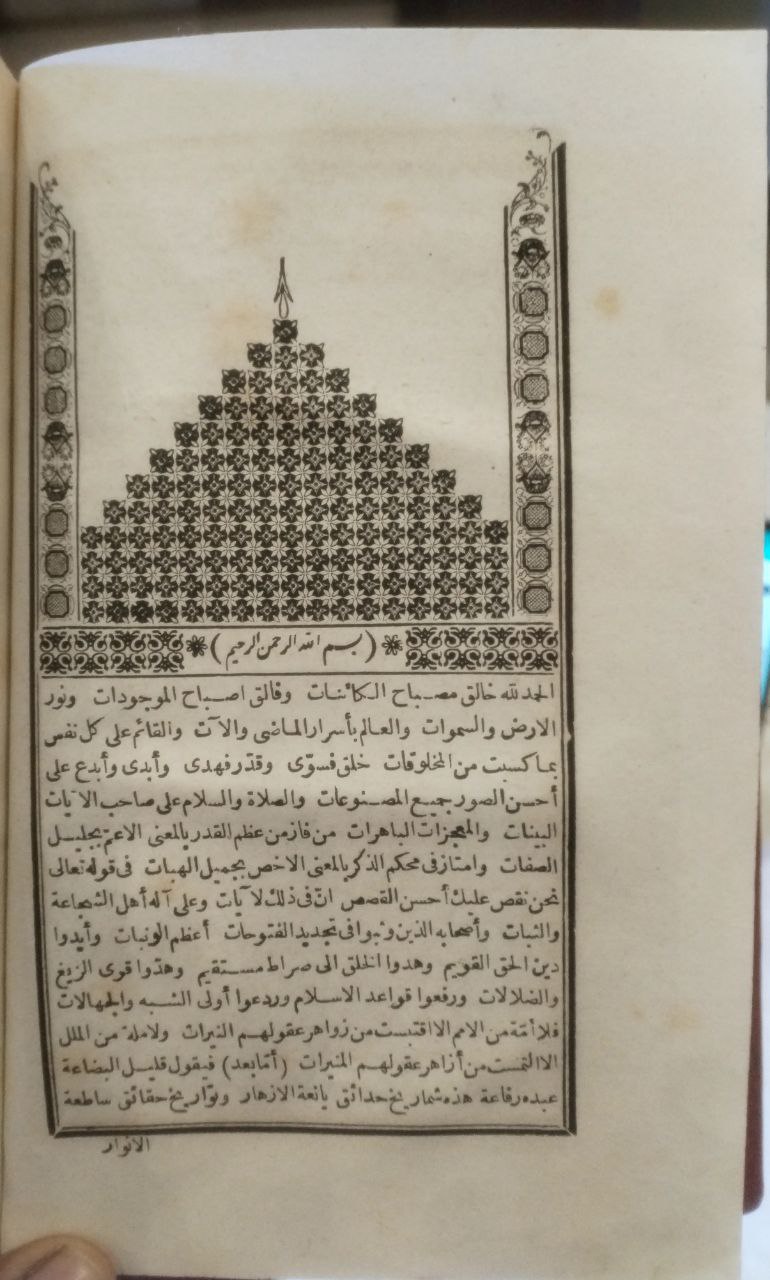 (بسم الله الرحمن الرحيم)
الحمد لله خالق مصباح الكائنات وفالق اصباح الموجودات ونور
الارض والسموات والعالم بأسرار الماضى والآت والقائم على كل نفس
بما كسبت من المخلوقات خلق فسوّى وقدّر فهدى وأبدى وأبدع على
أحسن الصور جميع المصنوعات والصلاة والسلام على صاحب الآيات
البينات والمعجزات الباهرات من فاز من عظم القدر بالمعنى الاعمّ بجليل
الصفات وامتاز فى محكم الذكر بالمعنى الاخص بجميل الهبات فى قوله تعالى
نحن نقص عليك أحسن القصص انّ فى ذلك لآيات وعلى آله أهل الشجاعة
والثبات وأصحابه الذين وثبوا فى تجديد الفتوحات أعظم الوثبات وأيدوا
دين الحق القويم وهدوا الخلق الى صراط مستقيم وهدّوا قوى الزيغ
والضلالات ورفعوا قواعد الاسلام وردعوا أولى الشبه والجهالات
فلا أمّة من الامم الا اقتبست من زواهر عقولهم النيرات ولا ملة من الملل
الا التمست من أزاهر عقولهم المنيرات (أمّا بعد) فيقول قليل البضاعة
عبده رفاعة هذه شماريخ حدائق يانعة الازهار وتواريخ حقائق ساطعة
الانوار